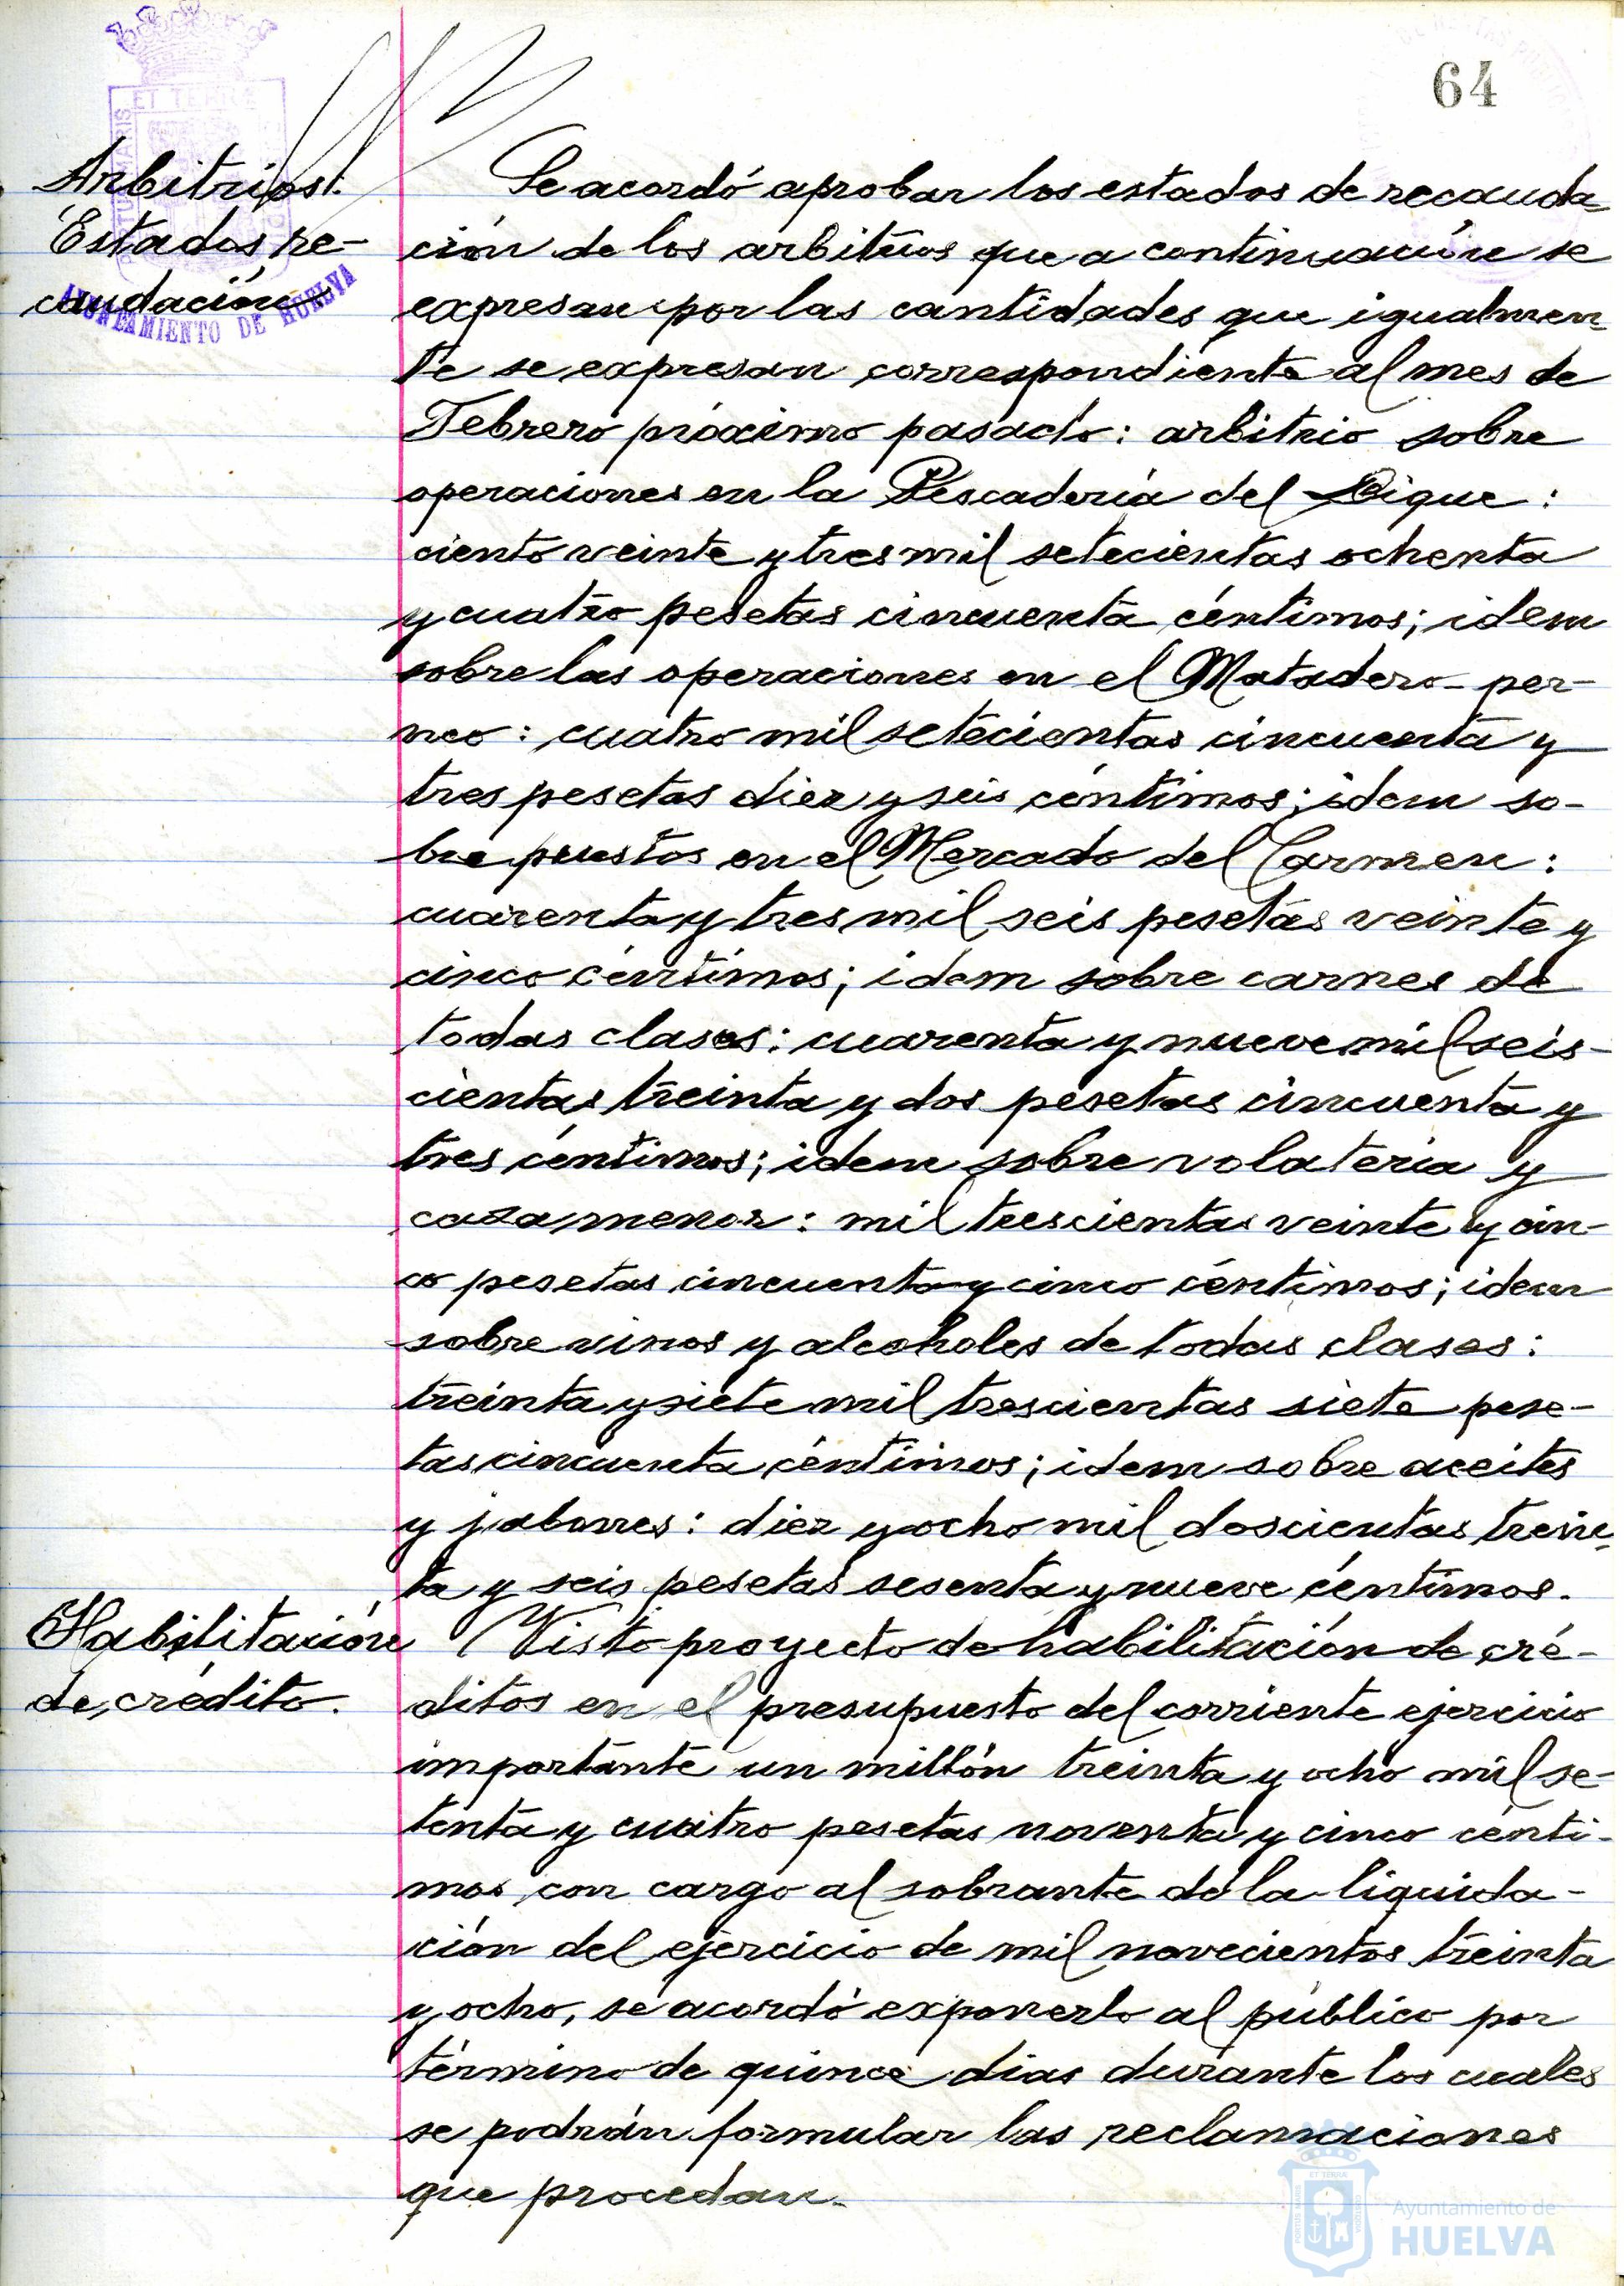 64
Arbitrios.
Estados re-
caudación
AYUNTAMIENTO DE HUELVA
Se acordó aprobar los estados de recauda-
ción de los arbitrios que a continuación se
expresan por las cantidades que igualmen-
te se expresan correspondiente al mes de
Febrero próximo pasado: arbitrio sobre
operaciones en la Pescadería del Dique:
ciento veinte y tres mil setecientas ochenta
y cuatro pesetas cincuenta céntimos; idem
sobre las operaciones en el Matadero- per-
neo: cuatro mil setecientas cincuenta y
tres pesetas diez y seis céntimos; idem so-
bre puestos en el Mercado del Carmen:
cuarenta y tres mil seis pesetas veinte y
cinco céntimos; idem sobre carnes de
todas clases: cuarenta y nueve mil seis-
cientas treinta y dos pesetas cincuenta y
tres céntimos; idem sobre volatería y
caza menor: mil trescientas veinte y cin-
co pesetas cincuenta y cinco céntimos; idem
sobre vinos y alcoholes de todas clases:
treinta y siete mil trescientas siete pese-
tas cincuenta céntimos; idem sobre aceites
y jabones: diez y ocho mil doscientas trein-
ta y seis pesetas sesenta y nueve céntimos.
Habilitación
de crédito.
Visto proyecto de habilitación de cré-
ditos en el presupuesto del corriente ejercicio
importante un millón treinta y ocho mil se-
tenta y cuatro pesetas noventa y cinco cénti-
mos con cargo al sobrante de la liquida-
ción del ejercicio de mil novecientos treinta
y ocho, se acordó exponerlo al público por
término de quince dias durante los cuales
se podrán formular las reclamaciones
que procedan.
Ayuntamiento de
HUELVA